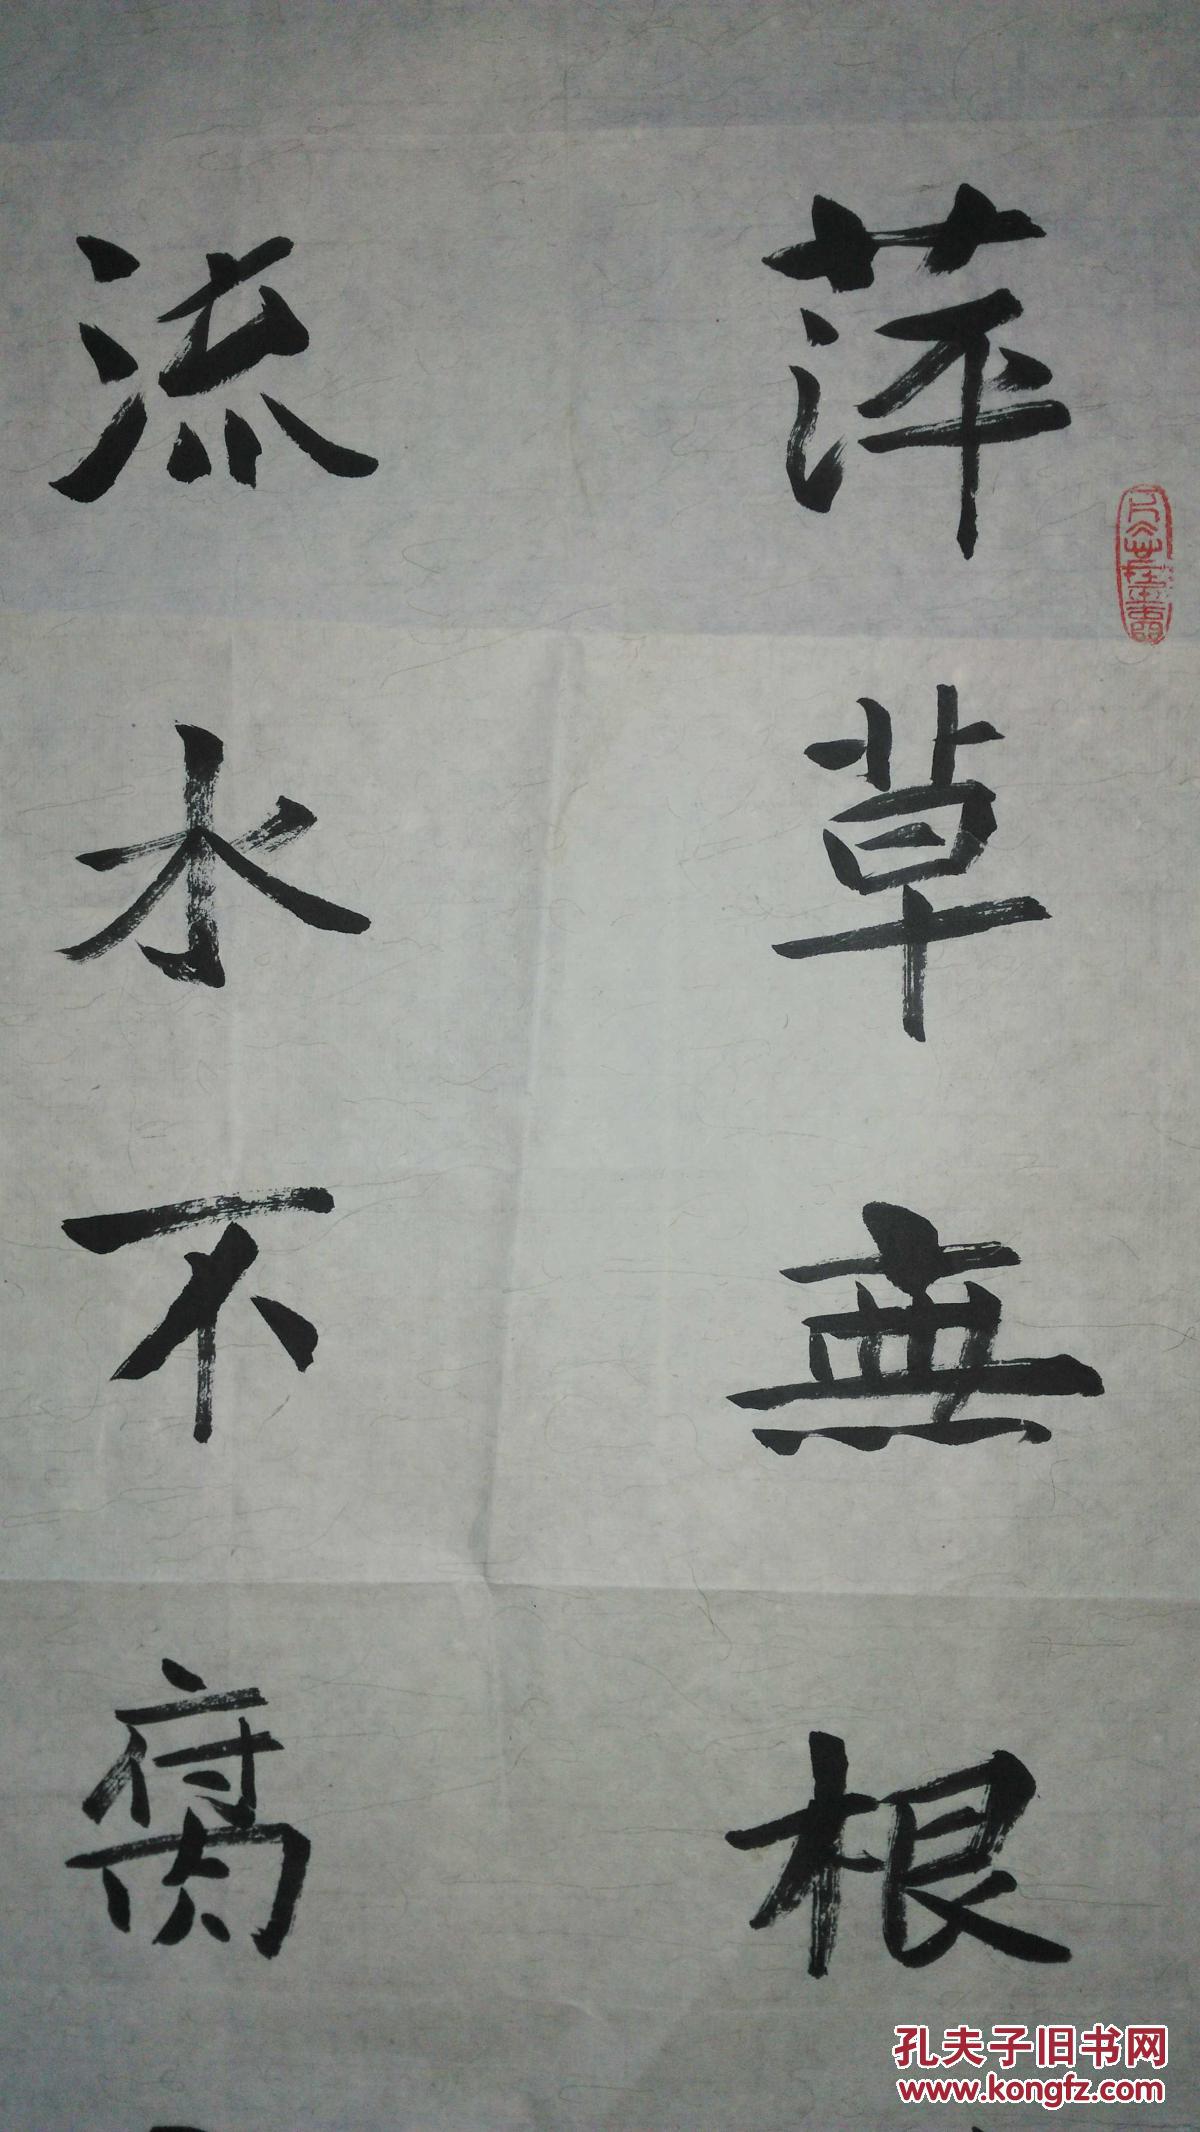 萍草無根
流水不腐
孔夫子旧书网
www.kongfz.com